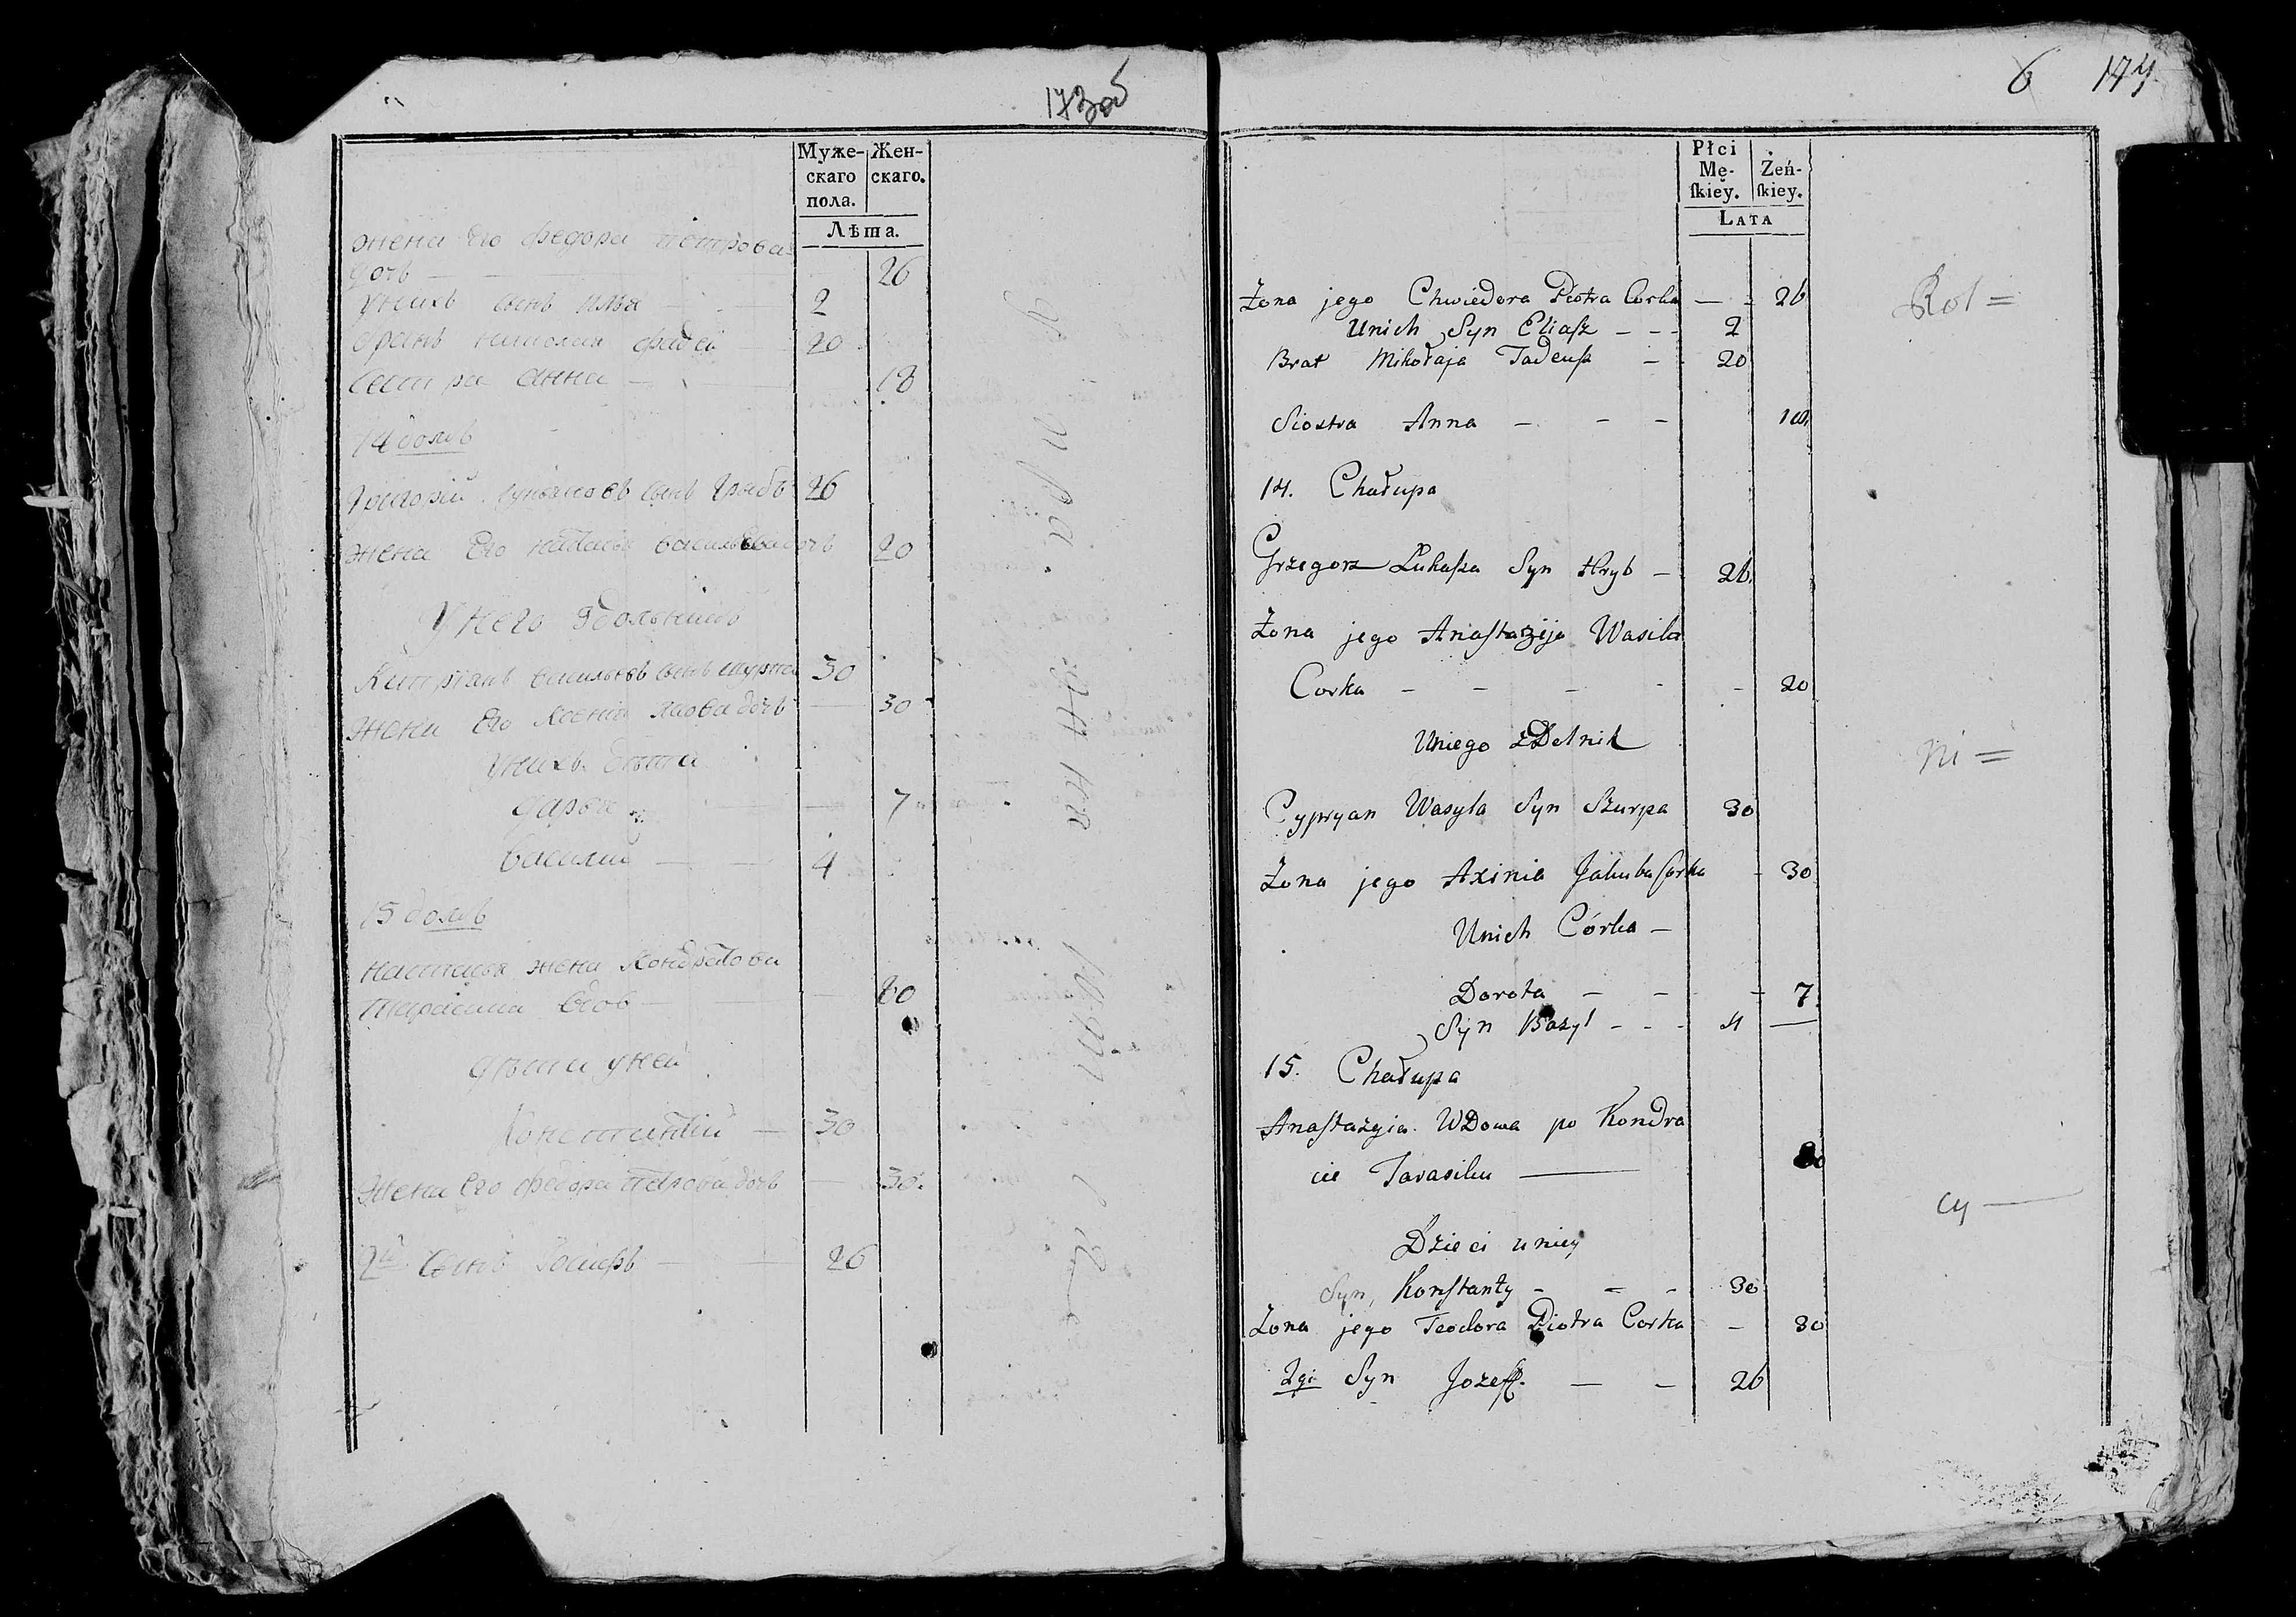 173об
Муже-
скаго
пола.
Жен-
скаго.
Лѣта.
жена его федора петрова
дочь — 26
у нихъ сынъ илья — 2
братъ николая фадей — 20
сестра анна — 18
14 домъ
григорій лукьяновъ сынъ грыбъ 26
жена его настасья васильева дочь 20
У него здольникъ
Киприанъ васильевъ сынъ шурпа 30
жена его Ксения яковлева дочь — 30
у нихъ дети
дарья — 7
василий — 4
15 домъ
настасья жена Кондратова
тарасика вдов — 80
дети у ней
Константій — 30
жена его федора петрова дочь — 30.
2й сынъ Іосифъ — 26
6 174
Płci
Mę-
ſkiey.
Żeń-
ſkiey.
LATA
Żona jego Chwiedora Piotra Corka — - 26
Unich Syn Eliaſz - - - 2
Brat Mikołaja Tadeuſz - 20
Siostra Anna - - - 18
14. Chałupa
Grzegorz Łukaſza Syn Hryb - 26
Żona jego Anaſtazija Wasila
Corka - - - - - 20
Uniego zDelnik
Cypryan Wasyla Syn Szurpa 30
Żona jego Axinia Jakuba Corka - 30
Unich Córka -
Dorota - - - 7
Syn Bazyl - - - 4 —
15. Chałupa
Anaſtazyia WDowa po Kondra
cie Tarasiku — 80
Dzieci uniey
Syn, Konſtanty - = - 30
Zona jego Teodora Piotra Corka - 30
2gi Syn Jozeff. — - 26
Rol =
ni =
cy —